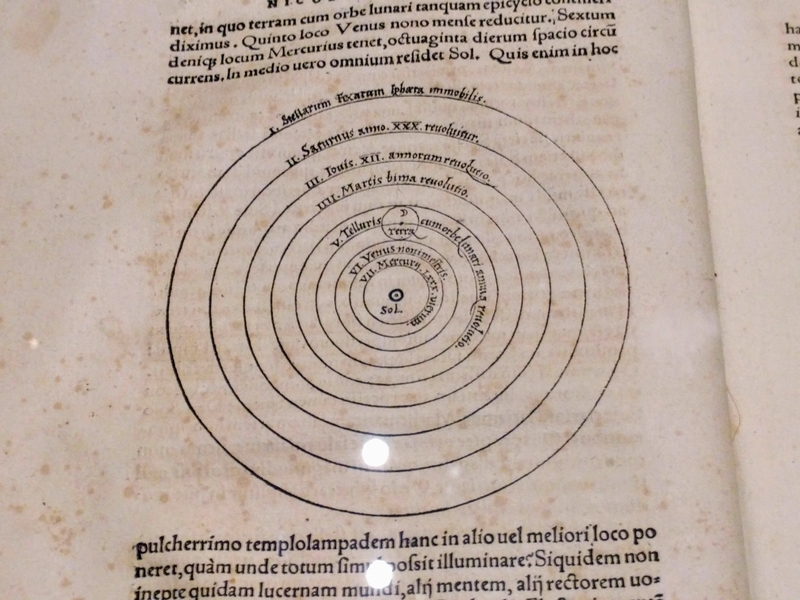 net, in quo terram cum orbe lunari tanquam epicyclo contineri
diximus. Quinto loco Venus nono mense reducitur. Sextum
deniq; locum Mercurius tenet, octuaginta dierum spacio circũ
currens. In medio uero omnium residet Sol. Quis enim in hoc
I. Stellarum fixarum sphæra immobilis.
II. Saturnus anno. XXX. reuoluitur.
III. Iouis. XII. annorum reuolutio.
IIII. Martis bima reuolutio.
V. Telluris cum orbe lunari annua reuolutio.
terra
VI. Venus nonimestris.
VII. Mercurij. LXXX. dierum.
Sol.
pulcherrimo templo lampadem hanc in alio uel meliori loco po
neret, quàm unde totum simul possit illuminare? Siquidem non
inepte quidam lucernam mundi, alij mentem, alij rectorem uo=